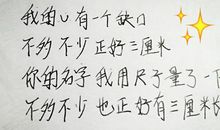 我的∪有一个缺口
不多不少正好三厘米
你的名字我用尺子量了一下
不多不少也正好有三厘米